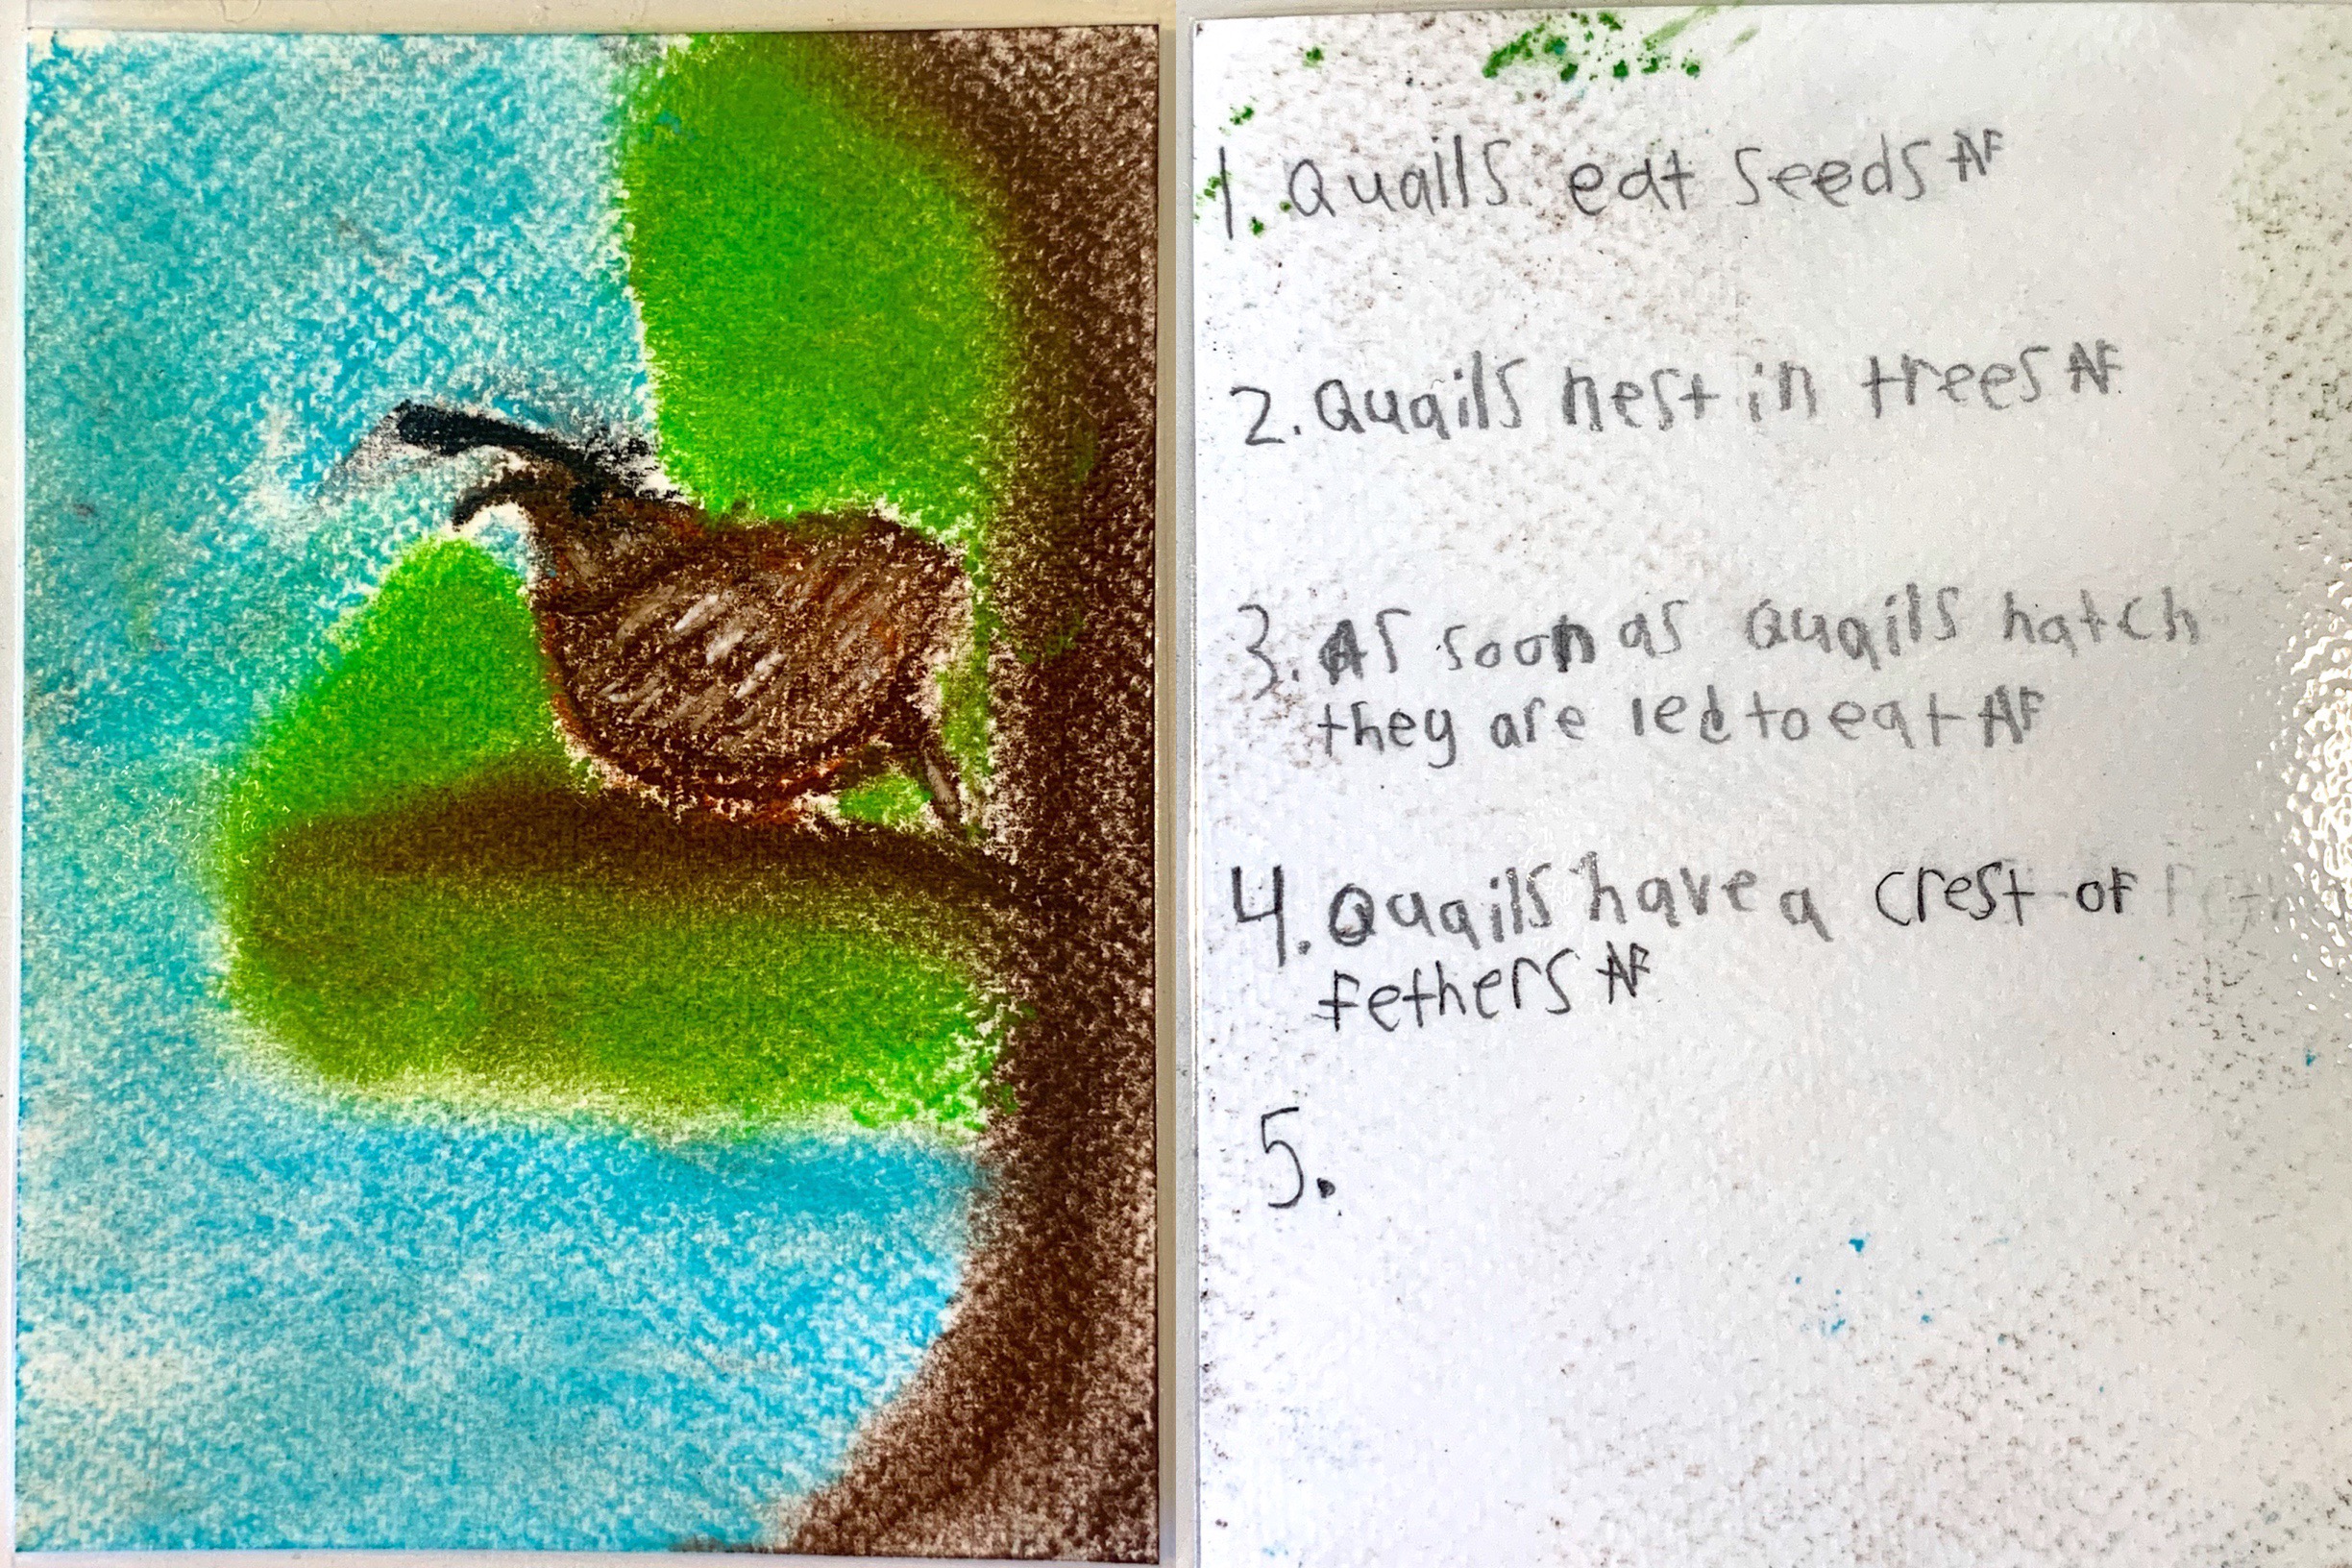 1. Quails eat seeds AF
2. Quails nest in trees AF
3. As soon as Quails hatch
they are led to eat AF
4. Quails have a crest of
fethers AF
5.